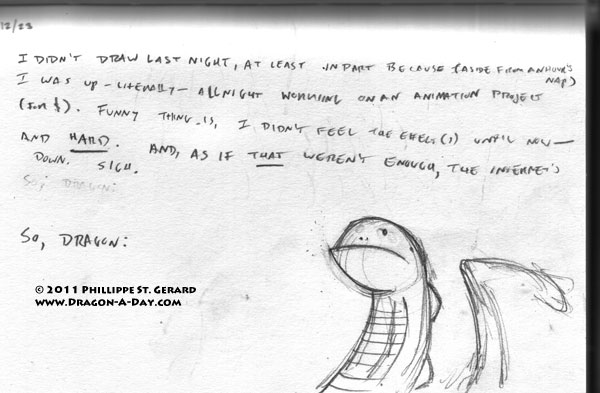 12/23
I DIDN'T DRAW LAST NIGHT, AT LEAST IN PART BECAUSE (ASIDE FROM AN HOUR'S NAP)
I WAS UP – LITERALLY – ALL NIGHT WORKING ON AN ANIMATION PROJECT
(FOR $). FUNNY THING IS, I DIDN'T FEEL THE EFFECT(S) UNTIL NOW—
AND HARD. AND, AS IF THAT WEREN'T ENOUGH, THE INTERNET'S
DOWN. SIGH.
SO, DRAGON:
SO, DRAGON:
© 2011 PHILLIPPE ST. GERARD
WWW.DRAGON-A-DAY.COM